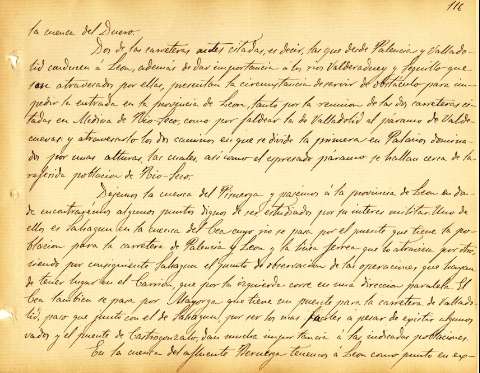 116
la cuenca del Duero.
Dos de las carreteras antes citadas, es decir, las que desde Palencia y Vallado-
lid conducen á Leon, además de dar importancia á los rios Valderaduey y Sequillo que
son atravesados por ellas, presentan la circunstancia de servir de obstáculo para im-
pedir la entrada en la provincia de Leon, tanto por la reunion de las dos carreteras ci-
tadas en Medina de Rio-seco, como por faldear la de Valladolid al páramo de Valde-
cuevas y atravesarlo los dos caminos en que se divide la primera en Palacios domina-
dos por unas alturas las cuales, asi como el expresado páramo se hallan cerca de la
referida poblacion de Rio-seco.
Dejemos la cuenca del Pisuerga y pasemos á la provincia de Leon en don-
de encontraremos algunos puntos dignos de ser estudiados por su interes militar. Uno de
ellos es Sahagun en la cuenca del Cea cuyo rio se pasa por el puente que tiene la po-
blacion para la carretera de Palencia y Leon y la linea ferrea que lo atraviesa por otro,
siendo por consiguiente Sahagun el punto de observacion de las operaciones que hayan
de tener lugar en el Carrion, que por la izquierda corre en una direccion paralela. El
Cea tambien se pasa por Mayorga que tiene un puente para la carretera de Vallado-
lid, paso que junto con el de Sahagun por ser los mas faciles a pesar de existir algunos
vados y el puente de Castrogonzalo, dan mucha importancia á las indicadas poblaciones.
En la cuenca del afluente Bernesga tenemos á Leon como punto en ex-